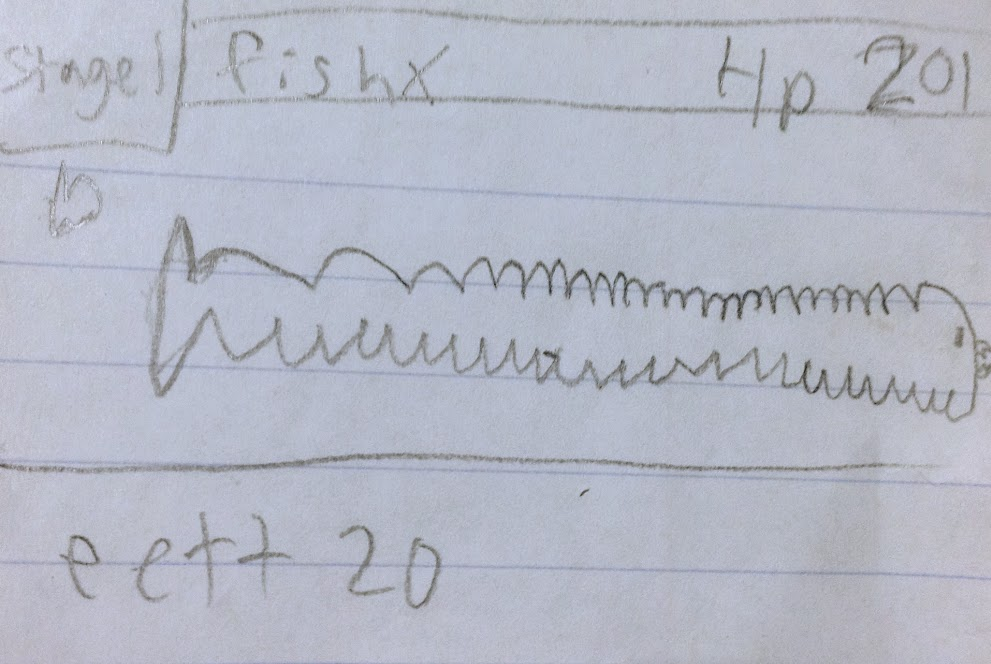 stage 1 fishx Hp 201
eett 20